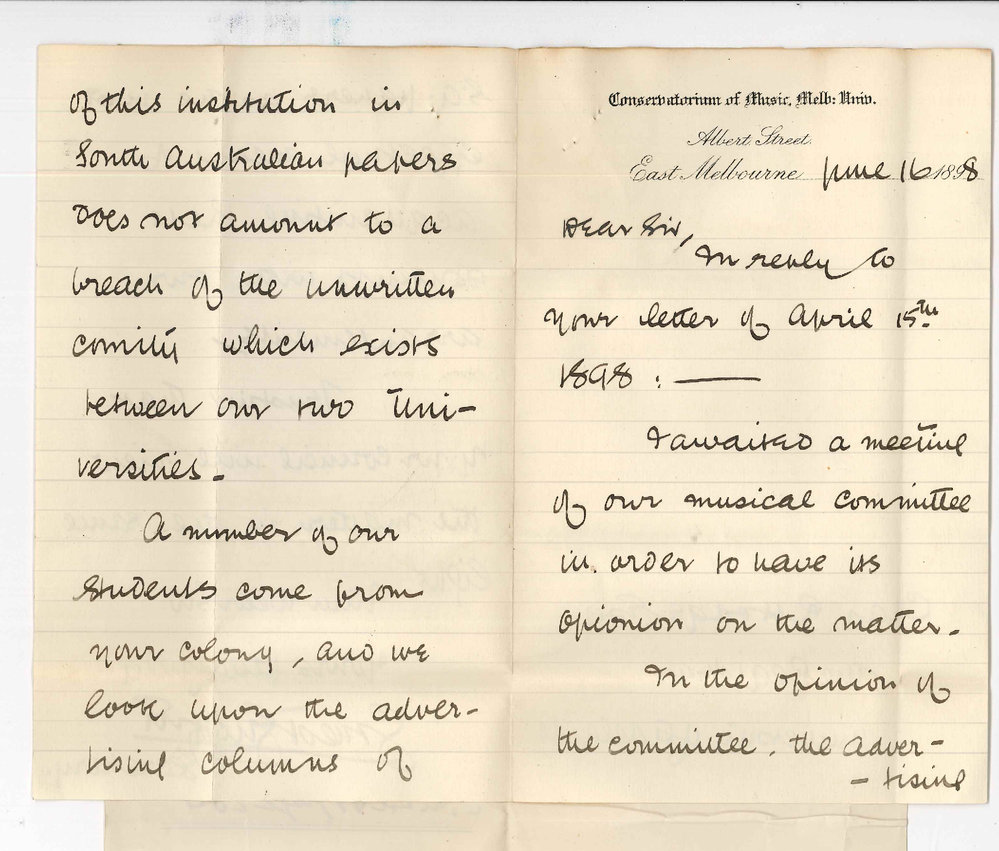 Conservatorium of Music, Melb: Univ.
Albert Street.
East Melbourne June 16 1898
Dear Sir,
In reply to
your letter of April 15th
1898 : —
I awaited a meeting
of our musical committee
in order to have its
opionion on the matter.
In the opinion of
the committee, the adver-
- tising
of this institution in
South Australian papers
does not amount to a
breach of the unwritten
comity which exists
between our two Uni-
versities.
A number of our
students come from
your colony, and we
look upon the adver-
tising columns of